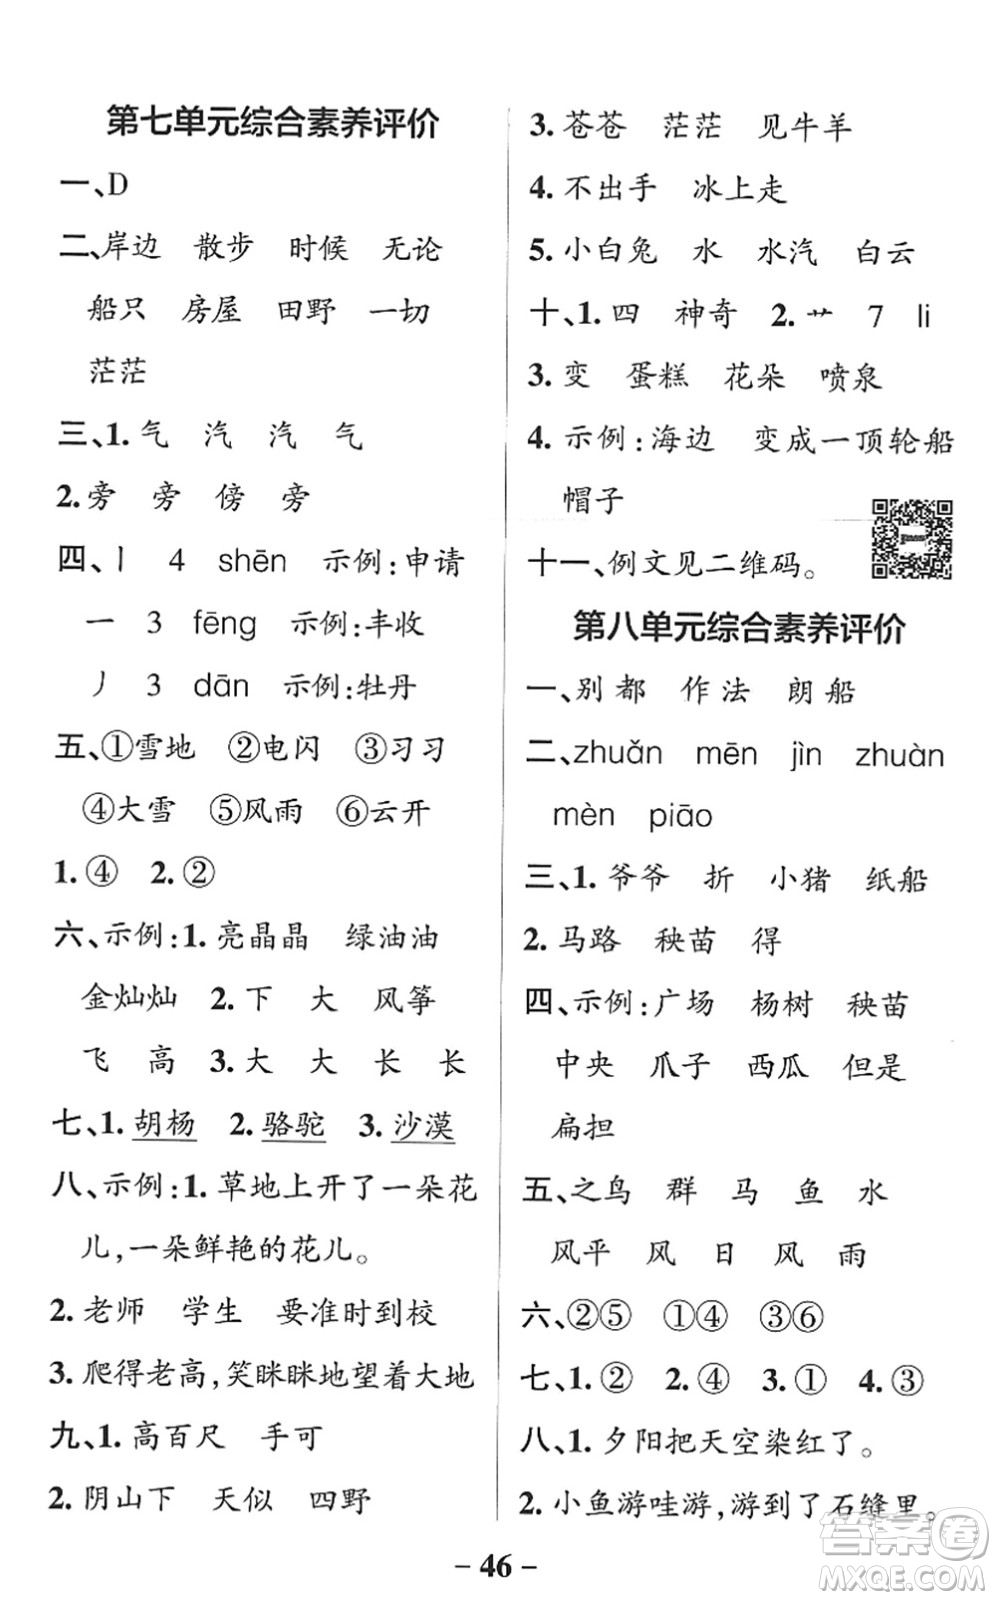 第七单元综合素养评价
一、D
二、岸边 散步 时候 无论
船只 房屋 田野 一切
茫茫
三、1.气 汽 汽 气
2.旁 旁 傍 旁
四、丨 4 shēn 示例:申请
一 3 fēng 示例:丰收
丿 3 dān 示例:牡丹
五、①雪地 ②电闪 ③习习
④大雪 ⑤风雨 ⑥云开
1.④ 2.②
六、示例:1.亮晶晶 绿油油
金灿灿 2.下 大 风筝
飞 高 3.大 大 长 长
七、1.胡杨 2.骆驼 3.沙漠
八、示例:1.草地上开了一朵花
儿,一朵鲜艳的花儿。
2.老师 学生 要准时到校
3.爬得老高,笑眯眯地望着大地
九、1.高百尺 手可
2.阴山下 天似 四野
3.苍苍 茫茫 见牛羊
4.不出手 冰上走
5.小白兔 水 水汽 白云
十、1.四 神奇 2.艹 7 li
3.变 蛋糕 花朵 喷泉
4.示例:海边 变成一顶轮船
帽子
十一、例文见二维码。
第八单元综合素养评价
一、别 都 作 法 朗 船
二、zhuǎn mēn jìn zhuàn
mèn piāo
三、1.爷爷 折 小猪 纸船
2.马路 秧苗 得
四、示例:广场 杨树 秧苗
中央 爪子 西瓜 但是
扁担
五、之鸟 群 马 鱼 水
风平 风 日 风 雨
六、②⑤ ①④ ③⑥
七、1.② 2.④ 3.① 4.③
八、1.夕阳把天空染红了。
2.小鱼游哇游,游到了石缝里。
- 46 -
答案圈
MXQE.COM